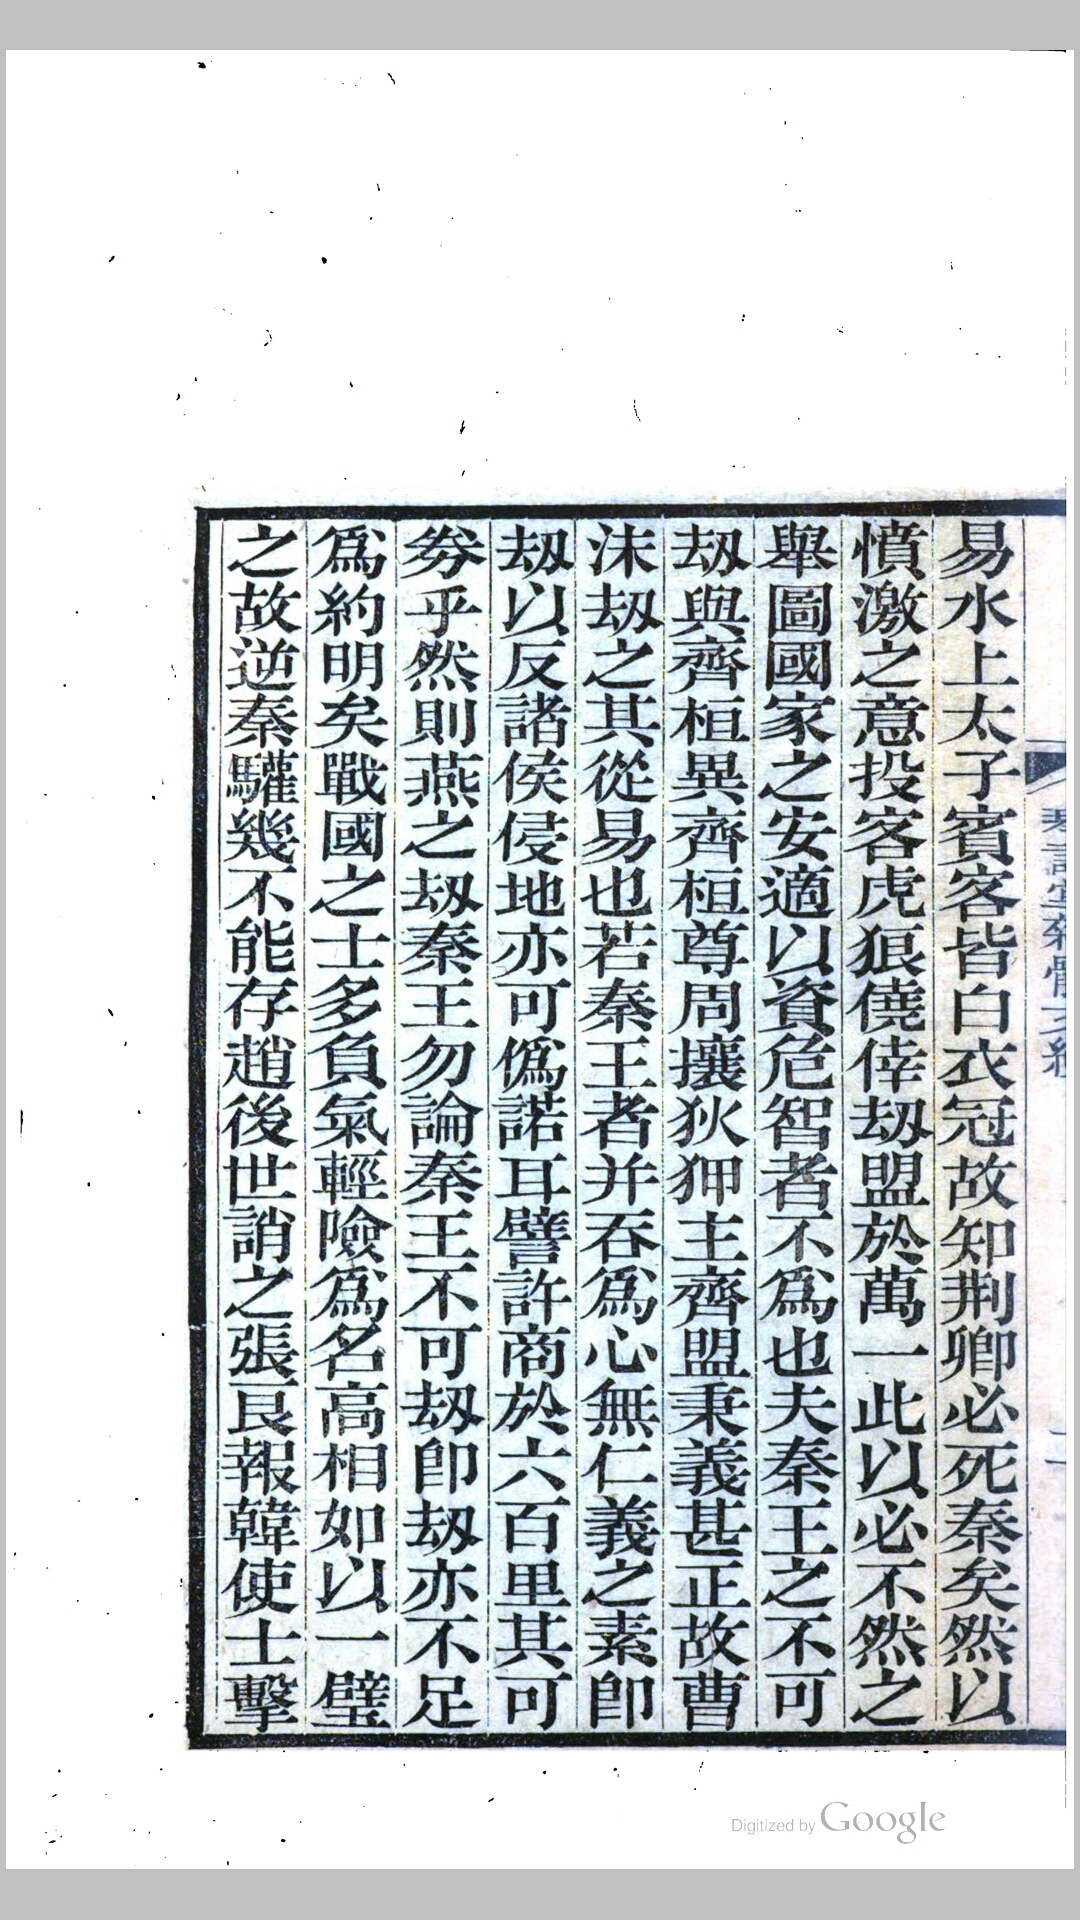 易水上太子賓客皆白衣冠故知荆卿必死秦矣然以
憤激之意投客虎狼僥倖刼盟於萬一此以必不然之
舉圖國家之安適以資危智者不爲也夫秦王之不可
刼與齊桓異齊桓尊周攘狄狎主齊盟秉義甚正故曹
沫刼之其從易也若秦王者并吞爲心無仁義之素卽
刼以反諸侯侵地亦可僞諾耳譬許商於六百里其可
劵乎然則燕之刼秦王勿論秦王不可刼卽刼亦不足
爲約明矣戰國之士多負氣輕險爲名高相如以一璧
之故逆秦驩幾不能存趙後世誚之張良報韓使士擊
Digitized by Google